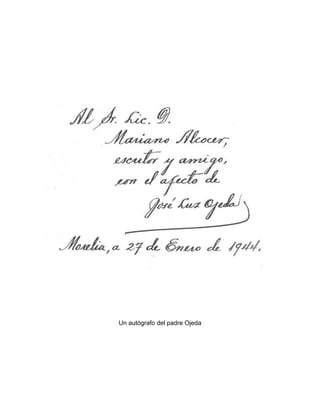 Al Sr. Lic. D.
Mariano Alcocer,
escritor y amigo,
con el afecto de
José Luz Ojeda
Morelia, a 27 de Enero de 1944.
Un autógrafo del padre Ojeda